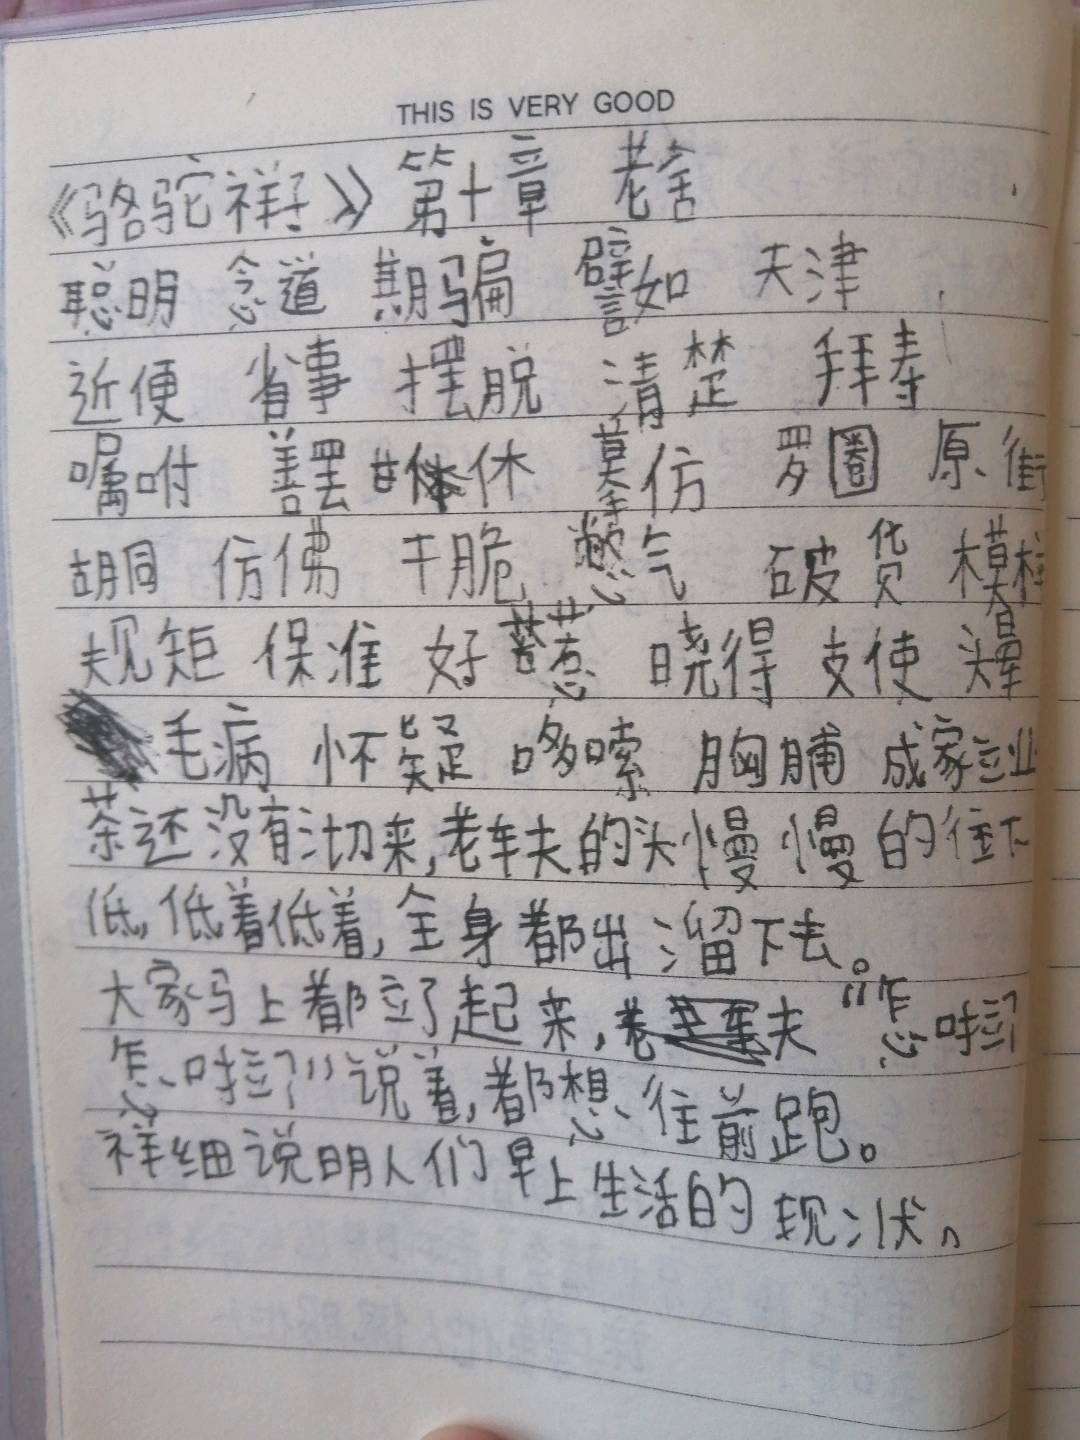 THIS IS VERY GOOD
《骆驼祥子》 第十章 老舍
聪明 念道 期骗 譬如 天津
近便 省事 摆脱 清楚 拜寿
嘱咐 善罢甘休 摹仿 罗圈 原街
胡同 仿佛 干脆 憋气 破货 模样
规矩 保准 好 晓得 支使
毛病 怀疑 哆嗦 胸脯 成家立业
茶还没有沏来,老车夫的头慢慢的往下
低,低着低着,全身都出溜下去。
大家马上都立了起来,老夫“怎啦
怎啦”说着,都想往前跑。
祥细说明人们早上生活的现状、